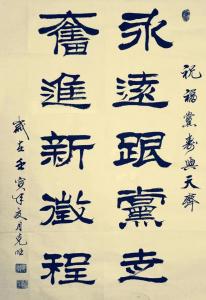 祝福黨壽與天齊
永遠跟黨走
奮進新徵程
歲在壬寅年文月